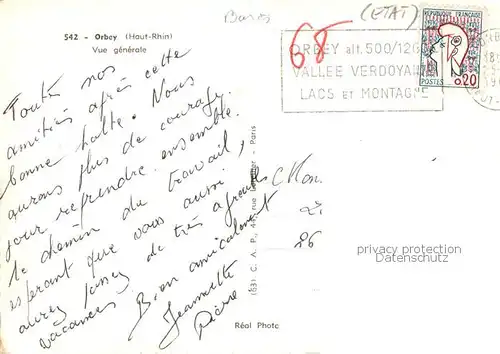 542 - Orbey (Haut-Rhin)
Vue générale
(ETAT)
68
ORBEY alt. 500/120
VALLEE VERDOYA
LACS et MONTAGNE
REPUBLIQUE FRANÇAISE
POSTES 0,20
Toutes nos
amitiés après cette
bonne halte. Nous
aurons plus de courage
pour reprendre ensemble
le chemin du travail,
espérant que vous aussi
aurez passé de très agréables
vacances.
Bien amicalement
Jeannette
Pierre
(63) C. A. P., 44, rue - Paris
26
Réal Photo
Datenschutz
privacy protection